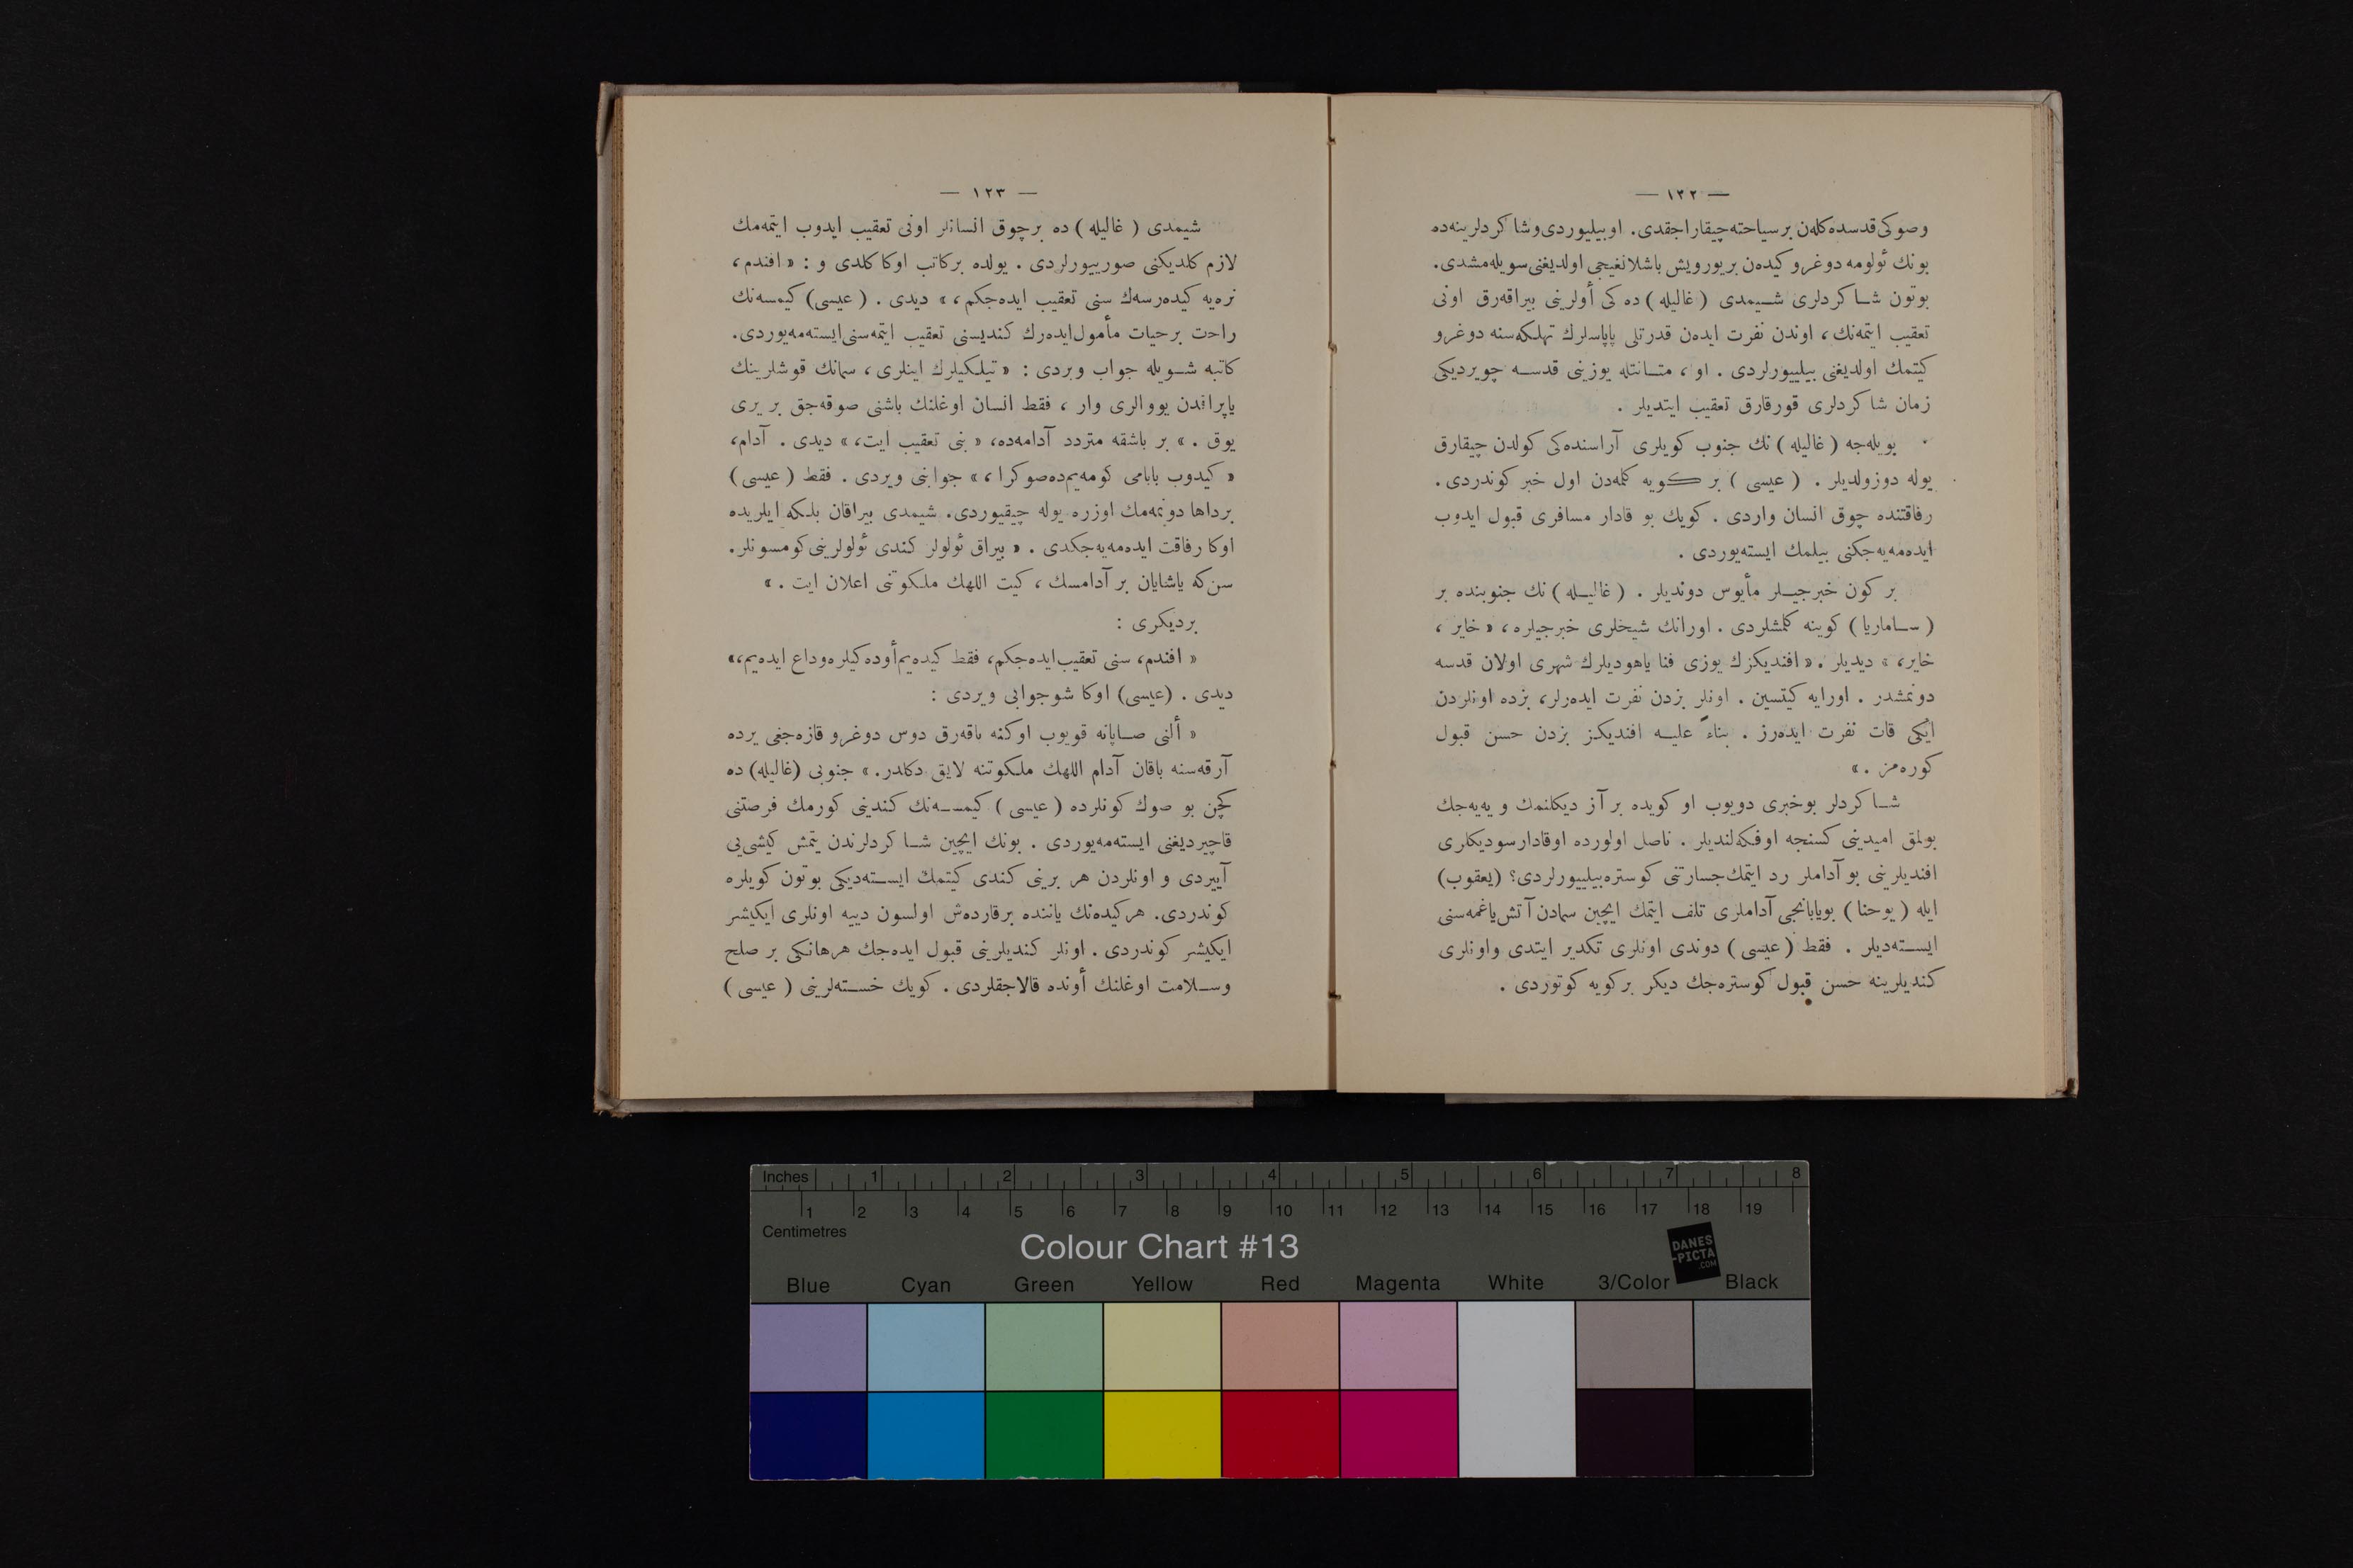 — ١٢٢ —
وصوكی قدسده كلەن برسیاحته چیقاراجقدی. اوبیلیوردی وشاكردلرینه ده
بونك ئولومه دوغرو كیدەن بریورویش باشلانغیجی اولدیغنی سویله مشدی.
بوتون شاكردلری شیمدی (غالیله) ده كی أولرینی بیراقەرق اونی
تعقیب ایتمەنك، اوندن نفرت ایدەن قدرتلی پاپاسلرك تهلكەسنه دوغرو
كیتمك اولدیغنی بیلییورلردی. او، متانتله یوزینی قدسه چویردیكی
زمان شاكردلری قورقارق تعقیب ایتدیلر.
بویلەجه (غالیله) نك جنوب كویلری آراسنده كی كولدن چیقارق
یوله دوزولدیلر. (عیسی) بر كویه كلمەدن اول خبر كوندردی.
رفاقتنده چوق انسان واردی. كویك بو قادار مسافری قبول ایدوب
ایدەمەیەجكنی بیلمك ایستەیوردی.
بر كون خبرجیلر مأیوس دوندیلر. (غالیله) نك جنوبنده بر
(ساماریا) كوینه كلمشلردی. اورانك شیخلری خبرجیلره، «خایر،
خایر،» دیدیلر. «افندیكزك یوزی فنا یاهودیلرك شهری اولان قدسه
دونمشدر. اورایه كیتسین. اونلر بزدن نفرت ایدەرلر، بزده اونلردن
ایكی قات نفرت ایدەرز. بناءً علیه افندیكز بزدن حسن قبول
كورەمز.»
شاكردلر بوخبری دویوب او كویده بر آز دیكلنمك و یەیەجك
بولمق امیدینی كسنجه اوفكەلندیلر. ناصل اولورده اوقادارسودیكلری
افندیلرینی بو آداملر رد ایتمك جسارتنی كوسترەبیلییورلردی؟ (یعقوب)
ایله (یوحنا) بویابانجی آداملری تلف ایتمك ایچین سمادن آتش یاغمەسنی
ایستەدیلر. فقط (عیسی) دوندی اونلری تكدیر ایتدی واونلری
كندیلرینه حسن قبول كوسترەجك دیكر بركویه كوتوردی.
— ١٢٣ —
شیمدی (غالیله) ده برچوق انسانلر اونی تعقیب ایدوب ایتمەمك
لازم كلدیكنی صورییورلردی. یولده بركاتب اوكا كلدی و: «افندم،
نرەیه كیدەرسەك سنی تعقیب ایدەجكم،» دیدی. (عیسی) كیمسەنك
راحت برحیات مأمول ایدەرك كندیسنی تعقیب ایتمەسنی ایستەمەیوردی.
كاتبه شویله جواب ویردی: «تیلكیلرك اینلری، سمانك قوشلرینك
یاپراقدن یووالری وار، فقط انسان اوغلنك باشنی صوقەجق بر یری
یوق.» بر باشقه متردد آدامەده، «بنی تعقیب ایت،» دیدی. آدام،
«كیدوب بابامی كومەیم ده صوكرا،» جوابنی ویردی. فقط (عیسی)
برداها دونمەمك اوزره یوله چیقیوردی. شیمدی بیراقان بلكه ایلریده
اوكا رفاقت ایدەمەیەجكدی. «بیراق ئولولر كندی ئولولرینی كومسونلر.
سن كه یاشایان بر آدامسك، كیت اللهك ملكوتنی اعلان ایت.»
بردیكری:
«افندم، سنی تعقیب ایدەجكم، فقط كیدەیم أوده كیلره وداع ایدەیم،»
دیدی. (عیسی) اوكا شو جوابی ویردی:
«ألنی صاپانه قویوب اوكنه باقەرق دوس دوغرو قازەجغی یرده
آرقەسنه باقان آدام اللهك ملكوتنه لایق دكلدر.» جنوبی (غالیله) ده
كچن بو صوك كونلرده (عیسی) كیمسەنك كندینی كورمك فرصتنی
قاچیردیغنی ایستەمەیوردی. بونك ایچین شاكردلرندن یتمش كیشی یی
آییردی و اونلردن هر برینی كندی كیتمك ایستەدیكی بوتون كویلره
كوندردی. هركیدەنك یاننده برقاردەش اولسون دییه اونلری ایكیشر
ایكیشر كوندردی. اونلر كندیلرینی قبول ایدەجك هرهانكی بر صلح
وسلامت اوغلنك أونده قالاجقلردی. كویك خستەلرینی (عیسی)
Inches 1 2 3 4 5 6 7 8
1 2 3 4 5 6 7 8 9 10 11 12 13 14 15 16 17 18 19
Centimetres
Colour Chart #13
DANES
-PICTA
.COM
Blue Cyan Green Yellow Red Magenta White 3/Color Black